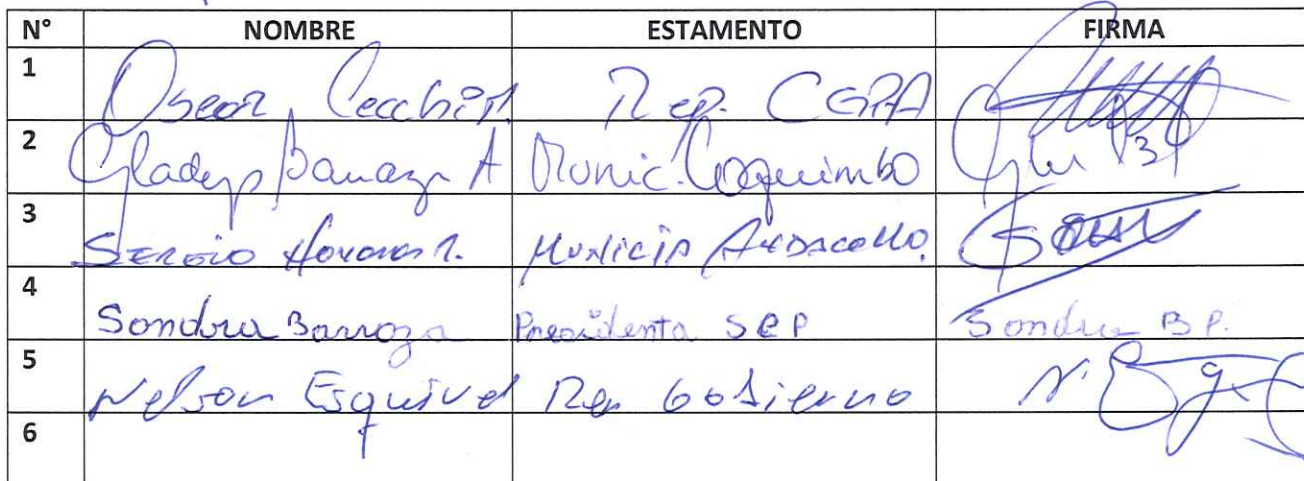 N° NOMBRE ESTAMENTO FIRMA
1 Oscar Cecchin Rep. CGPA
2 Gladys Barraza A Munic. Coquimbo
3 Sergio R. Municip Andacollo.
4 Sondra Barroza Presidenta SCP Sondra B P.
5 Nelson Esquivel Rep Gobierno
6